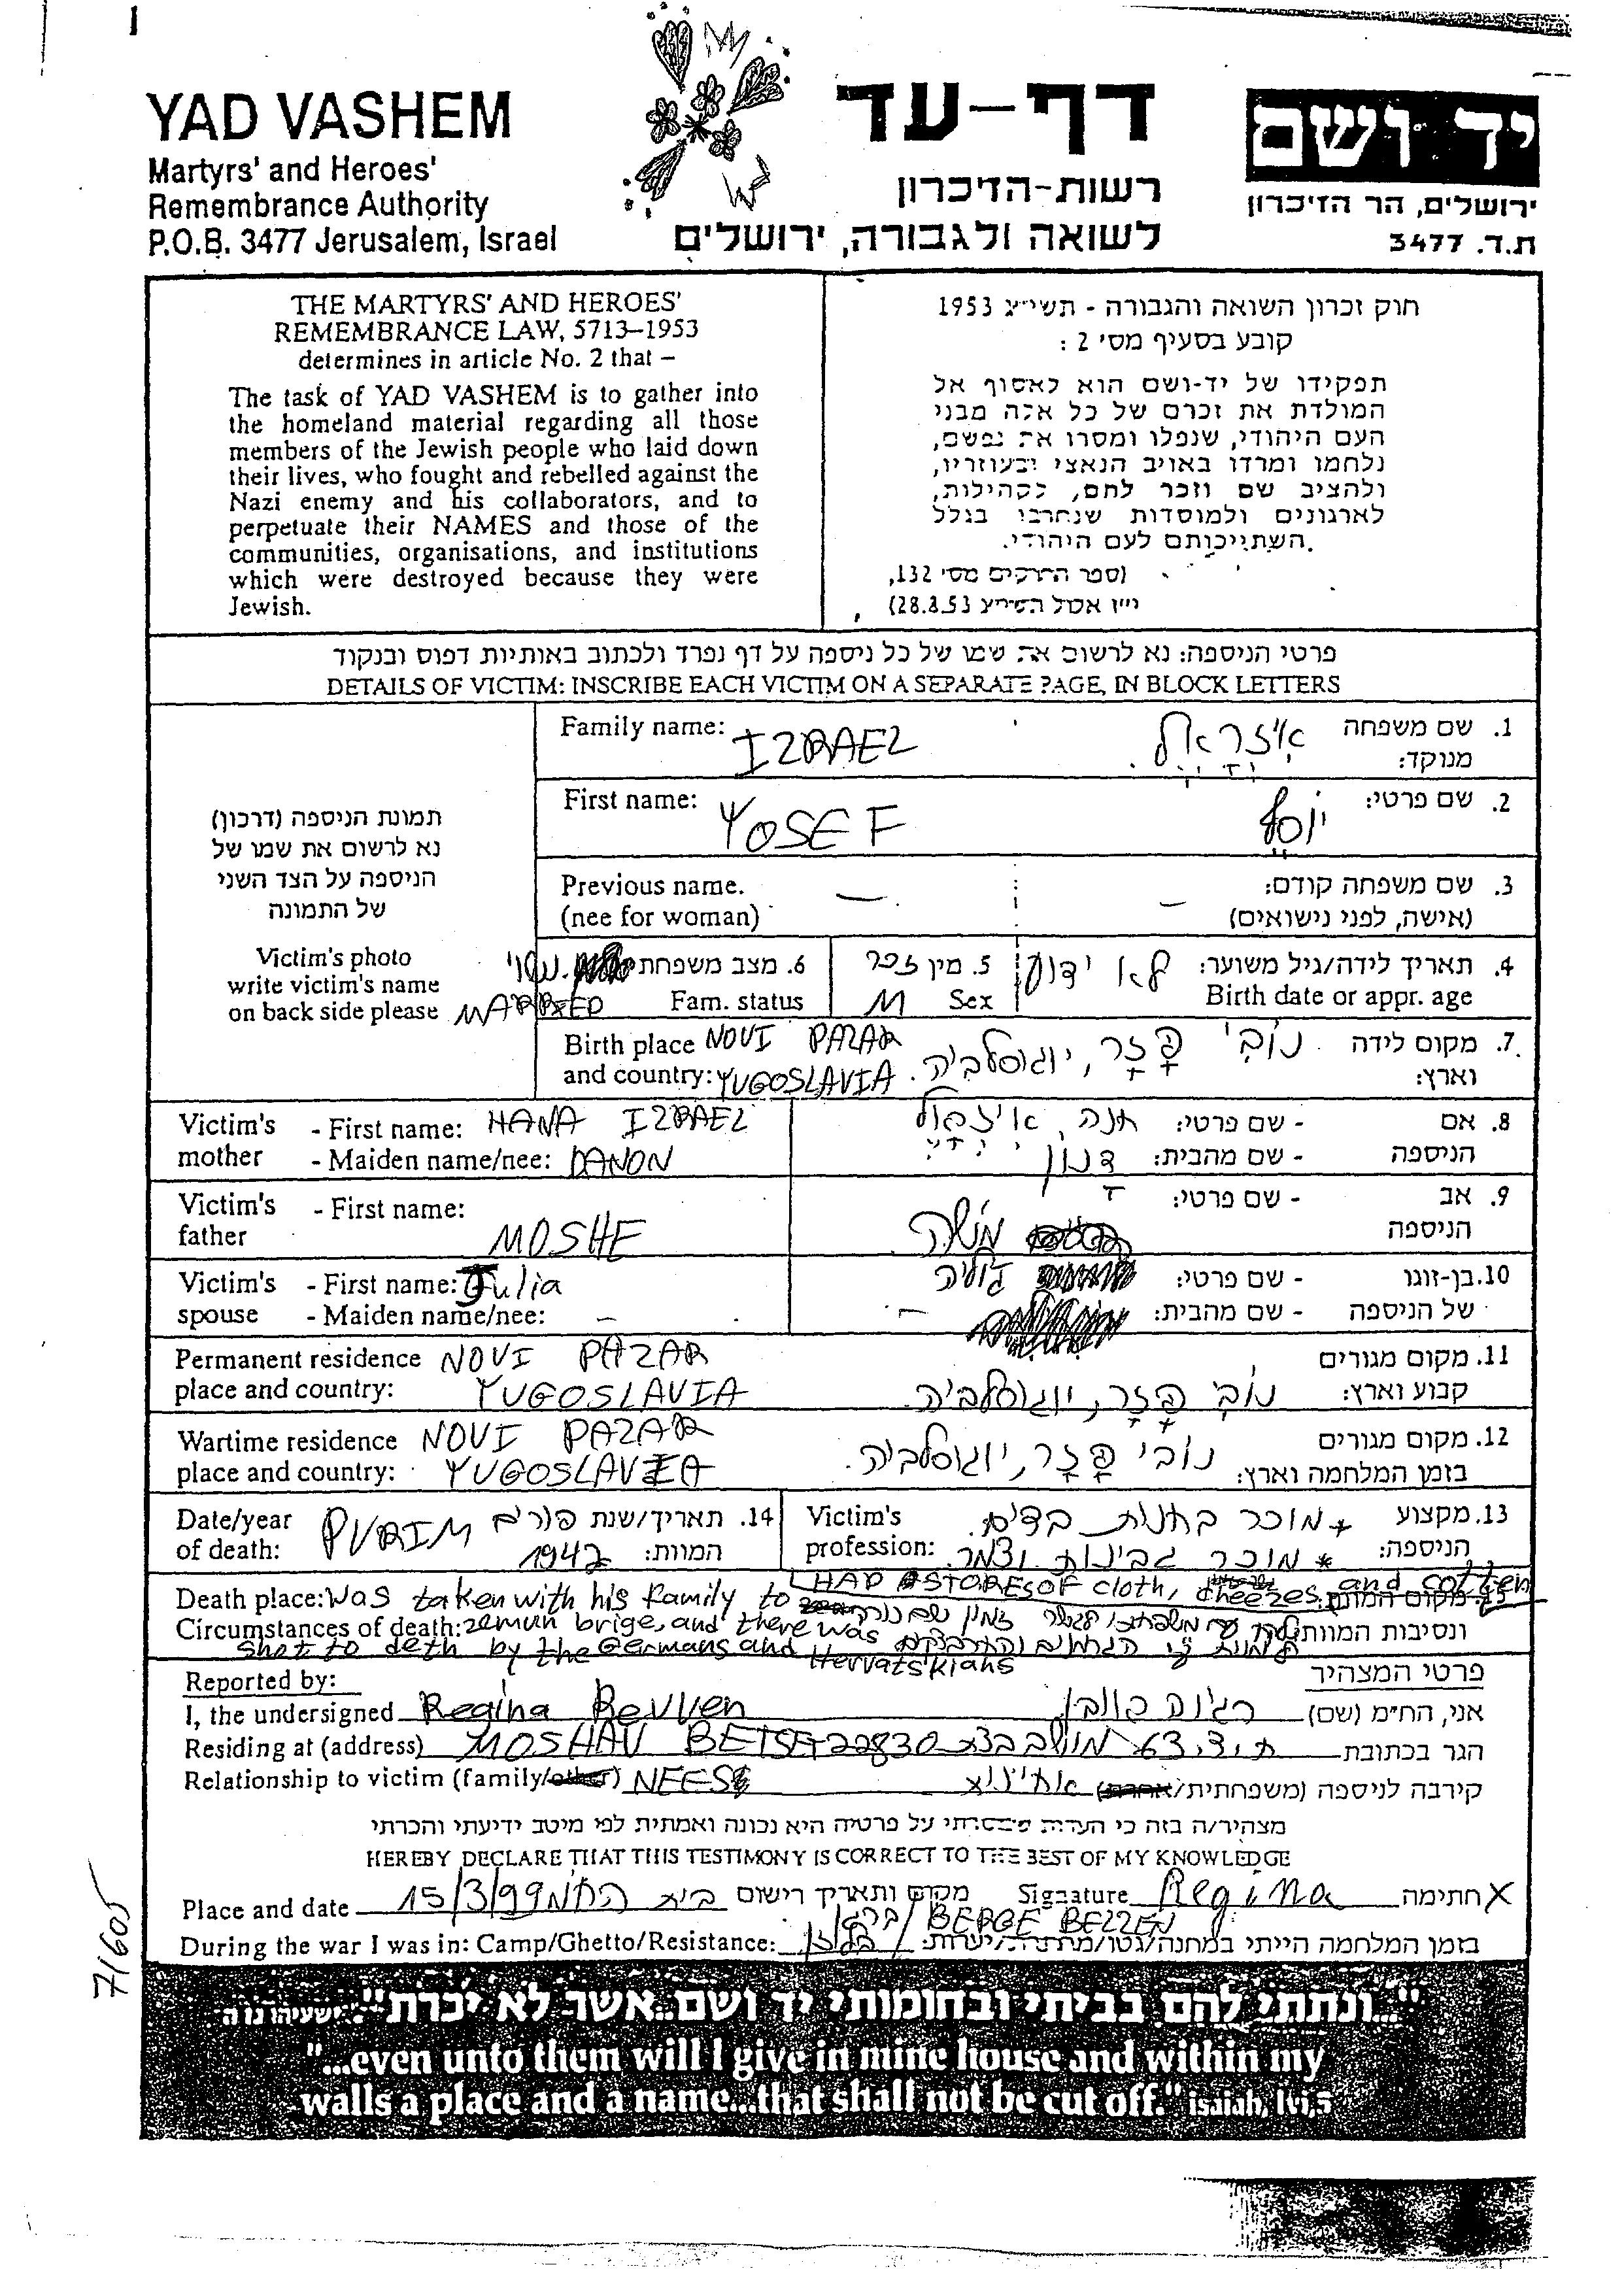 YAD VASHEM
Martyrs' and Heroes'
Remembrance Authority
P.O.B. 3477 Jerusalem, Israel
דף-עד
רשות-הזיכרון
לשואה ולגבורה, ירושלים
יד ושם
ירושלים, הר הזיכרון
ת.ד. 3477
THE MARTYRS' AND HEROES'
REMEMBRANCE LAW, 5713–1953
determines in article No. 2 that –
The task of YAD VASHEM is to gather into
the homeland material regarding all those
members of the Jewish people who laid down
their lives, who fought and rebelled against the
Nazi enemy and his collaborators, and to
perpetuate their NAMES and those of the
communities, organisations, and institutions
which were destroyed because they were
Jewish.
חוק זכרון השואה והגבורה - תשי"ג 1953
קובע בסעיף מס' 2 :
תפקידו של יד-ושם הוא לאסוף אל
המולדת את זכרם של כל אלה מבני
העם היהודי, שנפלו ומסרו את נפשם,
נלחמו ומרדו באויב הנאצי ובעוזריו,
ולהציב שם וזכר להם, לקהילות,
לארגונים ולמוסדות שנחרבו בגלל
השתייכותם לעם היהודי.
(ספר החוקים מס' 132,
28.8.53)
פרטי הניספה: נא לרשום את שמו של כל ניספה על דף נפרד ולכתוב באותיות דפוס ובנקוד
DETAILS OF VICTIM: INSCRIBE EACH VICTIM ON A SEPARATE PAGE, IN BLOCK LETTERS
תמונת הניספה (דרכון)
נא לרשום את שמו של
הניספה על הצד השני
של התמונה
Victim's photo
write victim's name
on back side please
Family name: IZRAEL אִיזְרָאֵל 1. שם משפחה
מנוקד:
First name: YOSEF יוסף 2. שם פרטי:
Previous name. — — 3. שם משפחה קודם:
(nee for woman) (אישה, לפני נישואים)
6. מצב משפחתי נשוי 5. מין זכר 4. תאריך לידה/גיל משוער: לא ידוע
MARRIED Fam. status M Sex Birth date or appr. age
Birth place NOVI PAZAR נובי פָּזָר, יוגוסלביה. 7. מקום לידה
and country: YUGOSLAVIA וארץ:
Victim's - First name: HANA IZRAEL חנה, איזראל - שם פרטי: 8. אם
mother - Maiden name/nee: DANON דנון - שם מהבית: הניספה
Victim's - First name: - שם פרטי: 9. אב
father MOSHE משה הניספה
Victim's - First name: Julia ג'וליה - שם פרטי: 10. בן-זוגו
spouse - Maiden name/nee: — — - שם מהבית: של הניספה
Permanent residence NOVI PAZAR 11. מקום מגורים
place and country: YUGOSLAVIA נובי פָּזָר, יוגוסלביה. קבוע וארץ:
Wartime residence NOVI PAZAR 12. מקום מגורים
place and country: YUGOSLAVIA נובי פָּזָר, יוגוסלביה. בזמן המלחמה וארץ:
Date/year PURIM פורים 14. תאריך/שנת
of death: 1942 המוות:
Victim's * מוכר בחנות בדים. 13. מקצוע
profession: * מוכר גבינות וצמר. הניספה:
HAD STORES OF cloth, cheezes and cotten
Death place: Was taken with his family to 15. מקום המוות
Circumstances of death: zemun brige, and there was ונסיבות המוות
shot to deth by the Germans and Hervatskians
Reported by: פרטי המצהיר
I, the undersigned Regina Revven אני, הח"מ (שם)
Residing at (address) MOSHAV BETSET 22830 מושב בצת הגר בכתובת
Relationship to victim (family/other) NEES אחיינית קירבה לניספה (משפחתית/אחרת)
מצהיר/ה בזה כי העדות שמסרתי על פרטיה היא נכונה ואמתית לפי מיטב ידיעתי והכרתי
HEREBY DECLARE THAT THIS TESTIMONY IS CORRECT TO THE BEST OF MY KNOWLEDGE
Place and date 15/3/99 מקום ותאריך רישום Signature Regina חתימה X
BERGE BELZEN
During the war I was in: Camp/Ghetto/Resistance: בזמן המלחמה הייתי במחנה/גטו/מחתרת/יערות:
71605
"...ונתתי להם בביתי ובחומותי יד ושם...אשר לא יכרת" ישעיהו נו ה
"...even unto them will I give in mine house and within my
walls a place and a name...that shall not be cut off." isaiah, lvi,5